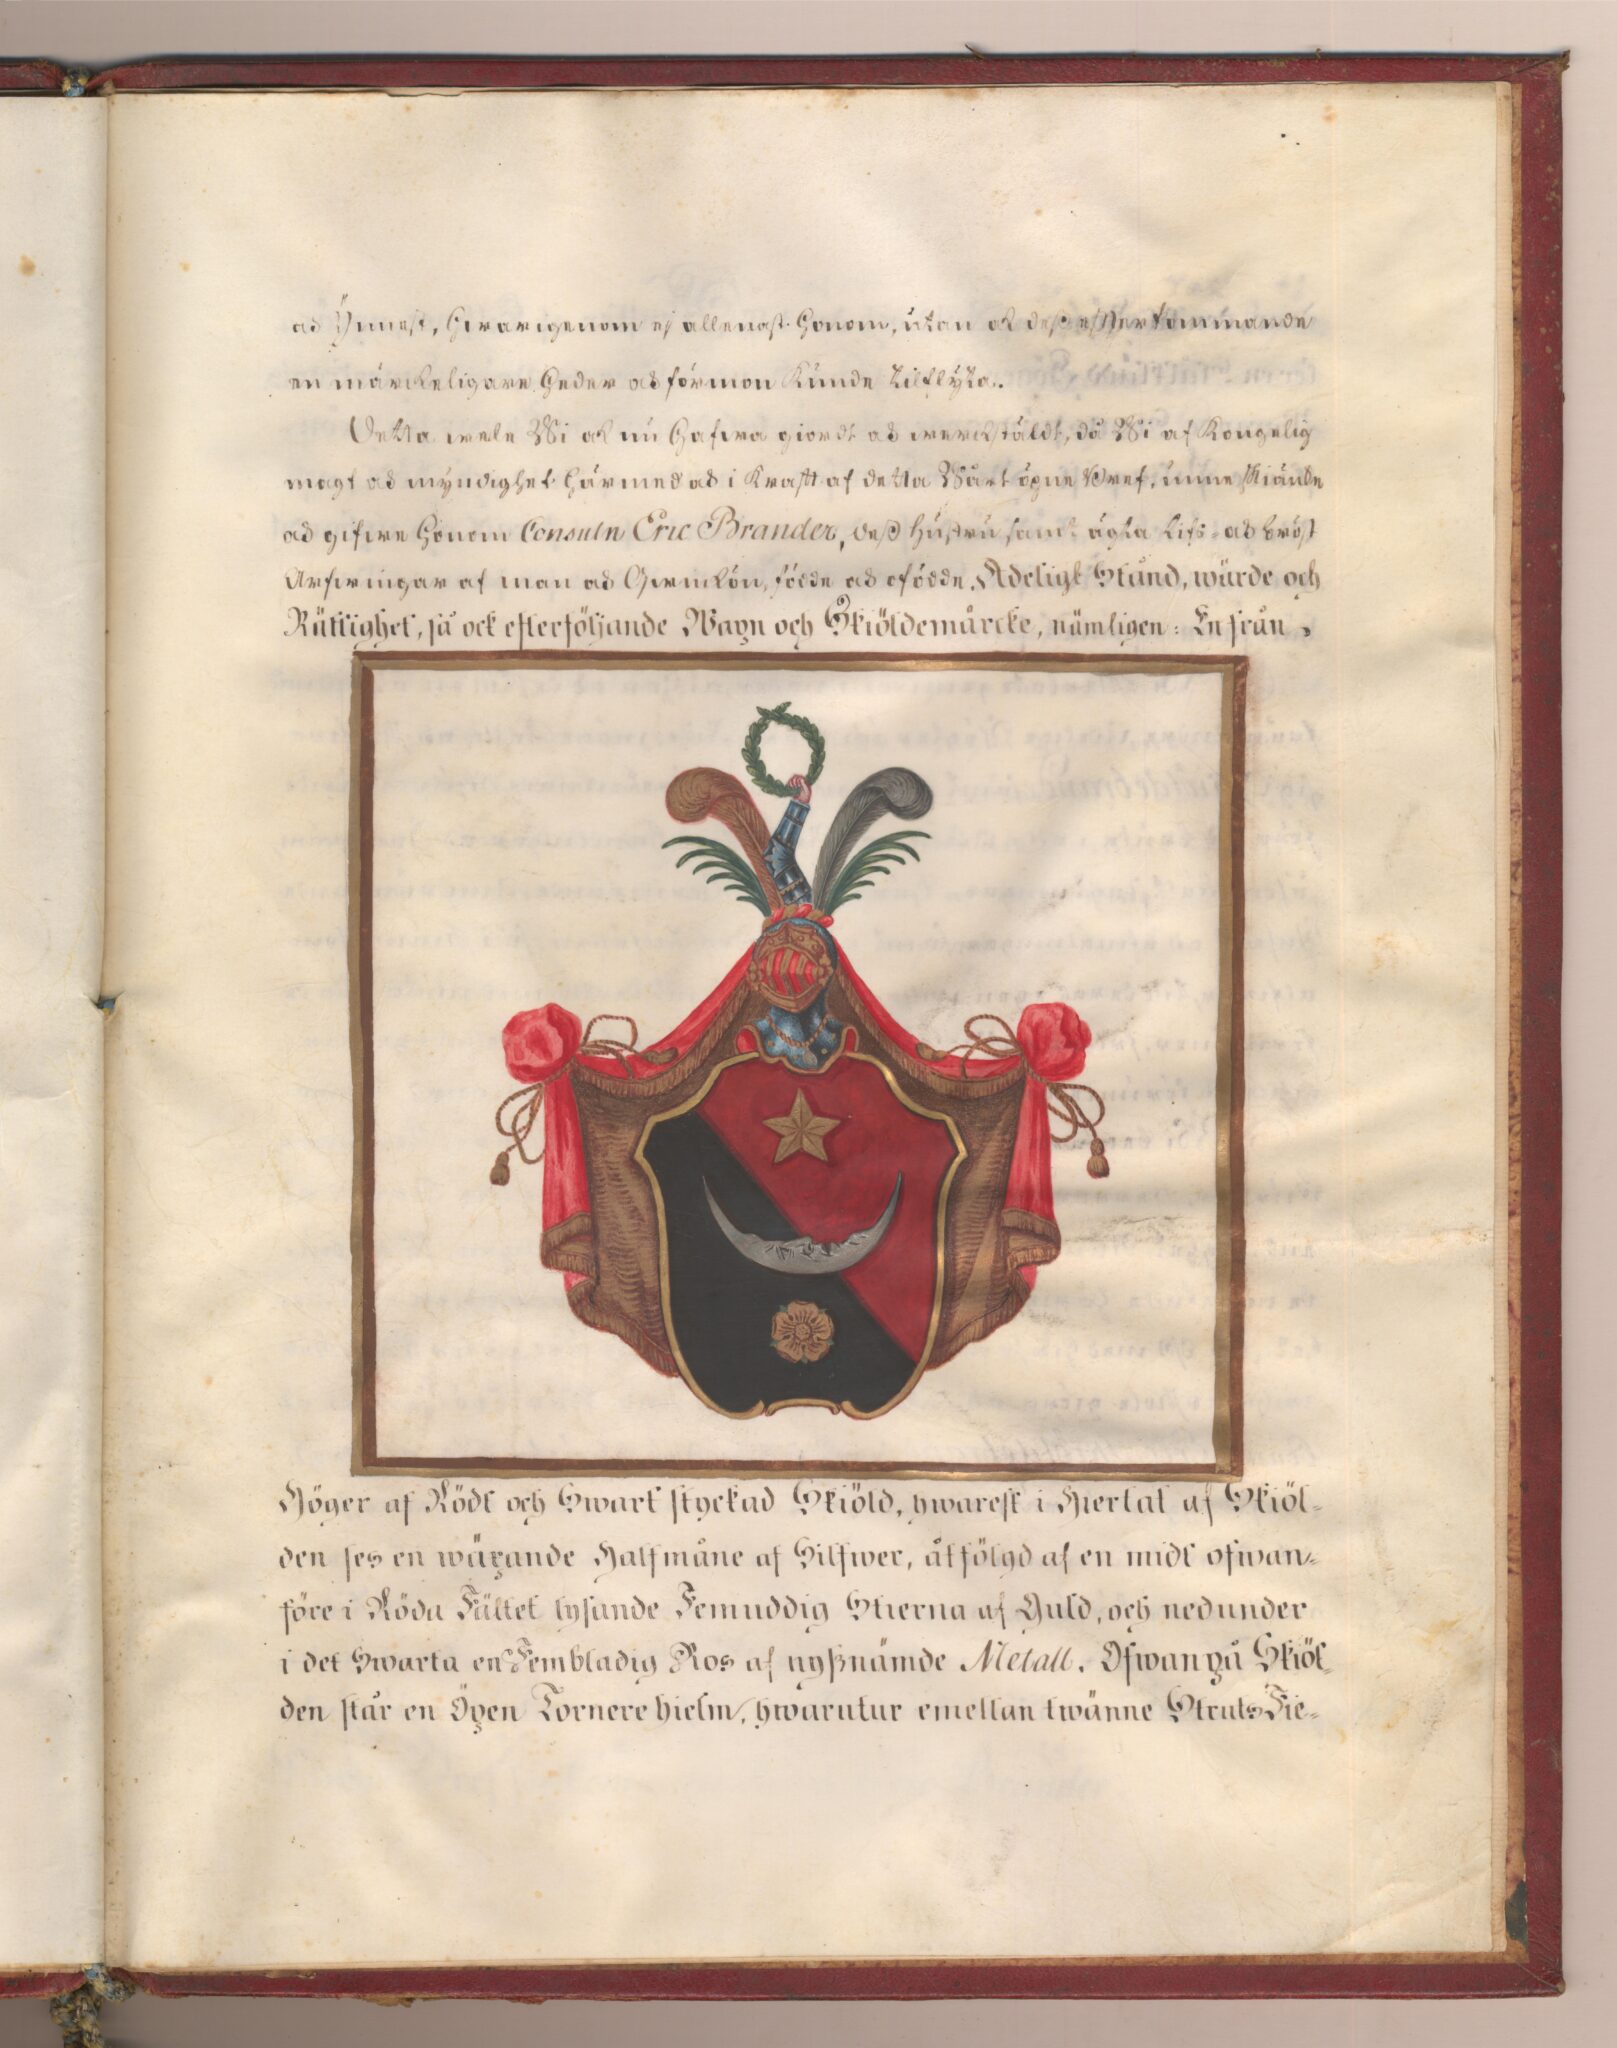 ad Ynnest, hwarigenom ej allenast honom, utan ock dess efterkommande
en märckeligare heder ad förmon kunde tilflyta.
Detta wele Wi ock nu hafwa giordt ad werckstäldt, då Wi af Kongelig
magt ad myndighet härmed ad i Krafft af detta Wårt öpne Bref, unne skiänke
ad gifwe honom Consuln Eric Brander, deß hustru samt ägta Lifs- ad bröst
Arfwingar af man ad Qwinkön, födde ad ofödde, Adeligt Stånd, wärde och
Rättighet, så ock efterföljande Wapn och Skiöldemärcke, nämligen: En från
Höger af Rödt och Swart styckad Skiöld, hwarest i Hiertat af Skiöl-
den ses en wäxande Halfmåne af Silfwer, åtfölgd af en midt ofwan-
före i Röda Fältet lysande Femuddig Stierna af Guld, och nedunder
i det Swarta en Fembladig Ros af nyßnämde Metall. Ofwanpå Skiöl-
den står en Öpen Tornere hielm, hwarutur emellan twänne Struts Fie-